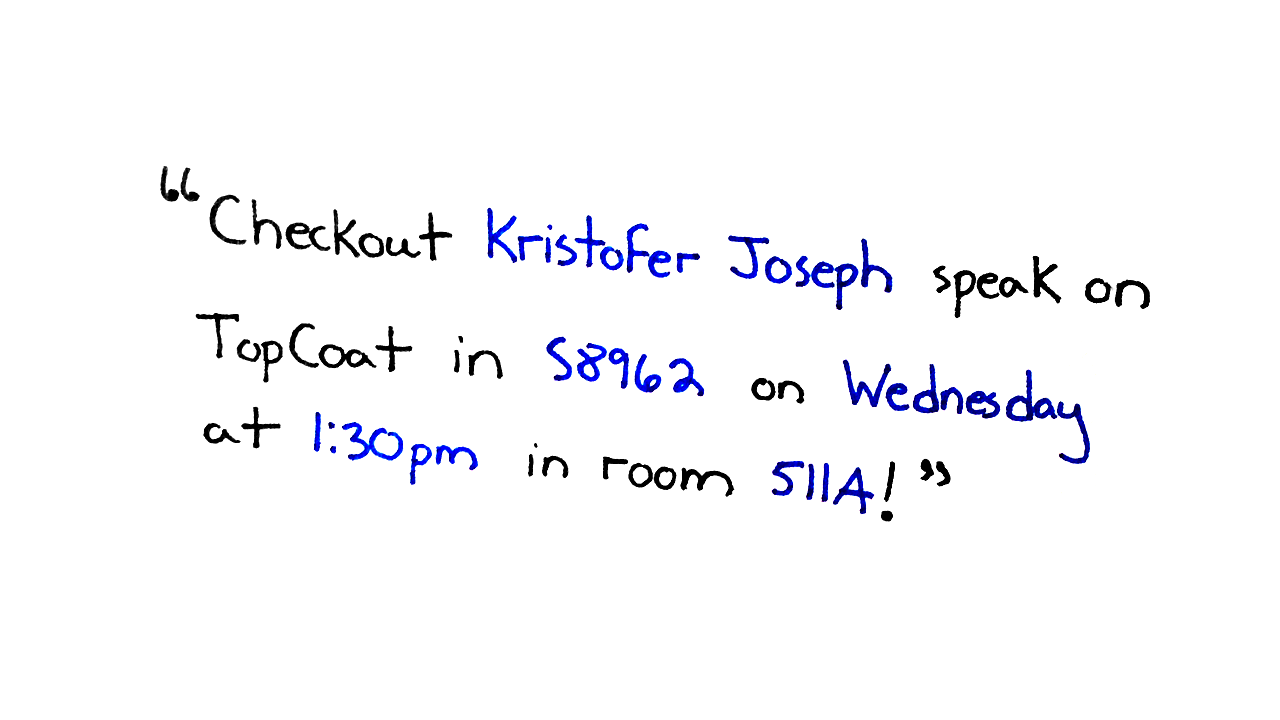 “Checkout Kristofer Joseph speak on
TopCoat in S8962 on Wednesday
at 1:30pm in room 511A!”